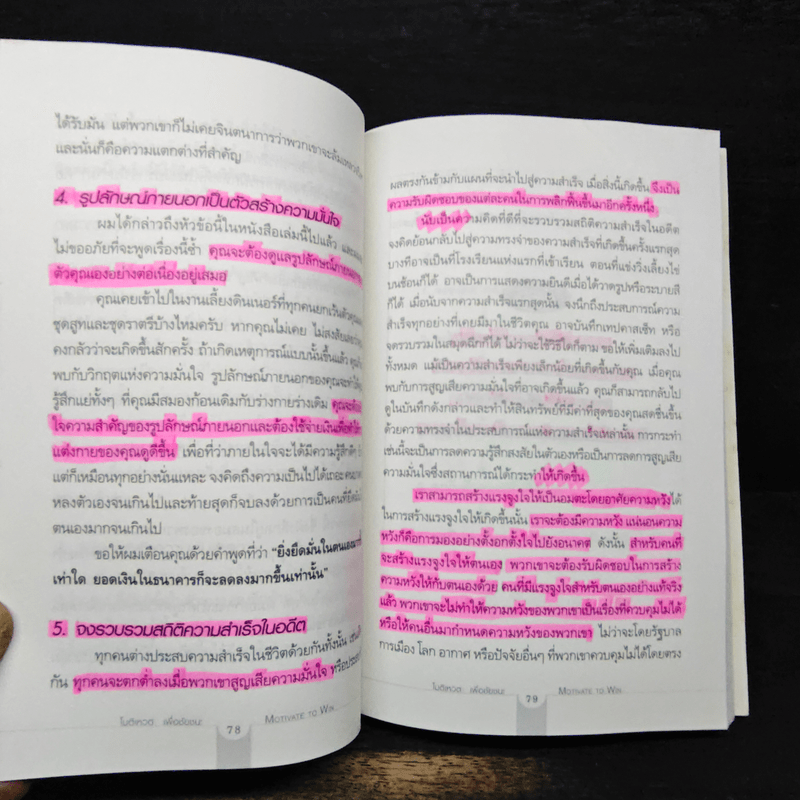 ได้รับมัน แต่พวกเขาก็ไม่เคยจินตนาการว่าพวกเขาจะล้มเหลว
และนั่นก็คือความแตกต่างที่สำคัญ
4. รูปลักษณ์ภายนอกเป็นตัวสร้างความมั่นใจ
ผมได้กล่าวถึงหัวข้อนี้ในหนังสือเล่มนี้ไปแล้ว และ
ไม่ขออภัยที่จะพูดเรื่องนี้ซ้ำ คุณจะต้องดูแลรูปลักษณ์ภายนอก
ตัวคุณเองอย่างต่อเนื่องอยู่เสมอ
คุณเคยเข้าไปในงานเลี้ยงดินเนอร์ที่ทุกคนยกเว้นตัวคุณ
ชุดสูทและชุดราตรีบ้างไหมครับ หากคุณไม่เคย ไม่สงสัยเลย
คงกลัวว่าจะเกิดขึ้นสักครั้ง ถ้าเกิดเหตุการณ์แบบนั้นขึ้นแล้ว
พบกับวิกฤตแห่งความมั่นใจ รูปลักษณ์ภายนอกของคุณจะทำให้
รู้สึกแย่ทั้งๆ ที่คุณมีสมองก้อนเดิมกับร่างกายร่างเดิม คุณจะต้อง
ใจความสำคัญของรูปลักษณ์ภายนอกและต้องใช้จ่ายเงินเพื่อทำให้
แต่งกายของคุณดูดีขึ้น เพื่อที่ว่าภายในใจจะได้มีความรู้สึกดีๆ
แต่ก็เหมือนทุกอย่างนั่นแหละ จงคิดถึงความเป็นไปได้เถอะ คน
หลงตัวเองจนเกินไปและท้ายสุดก็จบลงด้วยการเป็นคนที่ยึดมั่น
ตนเองมากจนเกินไป
ขอให้ผมเตือนคุณด้วยคำพูดที่ว่า "ยิ่งยึดมั่นในตนเองมากขึ้น
เท่าใด ยอดเงินในธนาคารก็จะลดลงมากขึ้นเท่านั้น"
5. จงรวบรวมสถิติความสำเร็จในอดีต
ทุกคนต่างประสบความสำเร็จในชีวิตด้วยกันทั้งนั้น เช่นเดียว
กัน ทุกคนจะตกต่ำลงเมื่อพวกเขาสูญเสียความมั่นใจ หรือประสบ
โมติเวต เพื่อชัยชนะ 78 MOTIVATE TO WIN
ผลตรงกันข้ามกับแผนที่จะนำไปสู่ความสำเร็จ เมื่อสิ่งนี้เกิดขึ้น จึงเป็น
ความรับผิดชอบของแต่ละคนในการพลิกฟื้นขึ้นมาอีกครั้งหนึ่ง
นับเป็นความคิดที่ดีที่จะรวบรวมสถิติความสำเร็จในอดีต
จงคิดย้อนกลับไปสู่ความทรงจำของความสำเร็จที่เกิดขึ้นครั้งแรกสุด
บางทีอาจเป็นที่โรงเรียนแห่งแรกที่เข้าเรียน ตอนที่แข่งวิ่งเลี้ยงไข่
บนช้อนก็ได้ อาจเป็นการแสดงความยินดีเมื่อได้วาดรูปหรือระบายสี
ก็ได้ เมื่อนับจากความสำเร็จแรกสุดนั้น จงนึกถึงประสบการณ์ความ
สำเร็จทุกอย่างที่เคยมีมาในชีวิตคุณ อาจบันทึกเทปคาสเซ็ท หรือ
จดรวบรวมในสมุดฉีกก็ได้ ไม่ว่าจะใช้วิธีใดก็ตาม ขอให้เพิ่มเติมลงไป
ทั้งหมด แม้เป็นความสำเร็จเพียงเล็กน้อยที่เกิดขึ้นกับคุณ เมื่อคุณ
พบกับการสูญเสียความมั่นใจที่อาจเกิดขึ้นแล้ว คุณก็สามารถกลับไป
ดูในบันทึกดังกล่าวและทำให้สินทรัพย์ที่มีค่าที่สุดของคุณสดชื่นขึ้น
ด้วยความทรงจำในประสบการณ์แห่งความสำเร็จเหล่านั้น การกระทำ
เช่นนี้จะเป็นการลดความรู้สึกสงสัยในตัวเองหรือเป็นการลดการสูญเสีย
ความมั่นใจซึ่งสถานการณ์ได้กระทำให้เกิดขึ้น
เราสามารถสร้างแรงจูงใจให้เป็นอมตะโดยอาศัยความหวังได้
ในการสร้างแรงจูงใจให้เกิดขึ้นนั้น เราจะต้องมีความหวัง แน่นอนความ
หวังก็คือการมองอย่างตั้งอกตั้งใจไปยังอนาคต ดังนั้น สำหรับคนที่
จะสร้างแรงจูงใจให้ตนเอง พวกเขาจะต้องรับผิดชอบในการสร้าง
ความหวังให้กับตนเองด้วย คนที่มีแรงจูงใจสำหรับตนเองอย่างแท้จริง
แล้ว พวกเขาจะไม่ทำให้ความหวังของพวกเขาเป็นเรื่องที่ควบคุมไม่ได้
หรือให้คนอื่นมากำหนดความหวังของพวกเขา ไม่ว่าจะโดยรัฐบาล
การเมือง โลก อากาศ หรือปัจจัยอื่นๆ ที่พวกเขาควบคุมไม่ได้โดยตรง
โมติเวต เพื่อชัยชนะ 79 MOTIVATE TO WIN